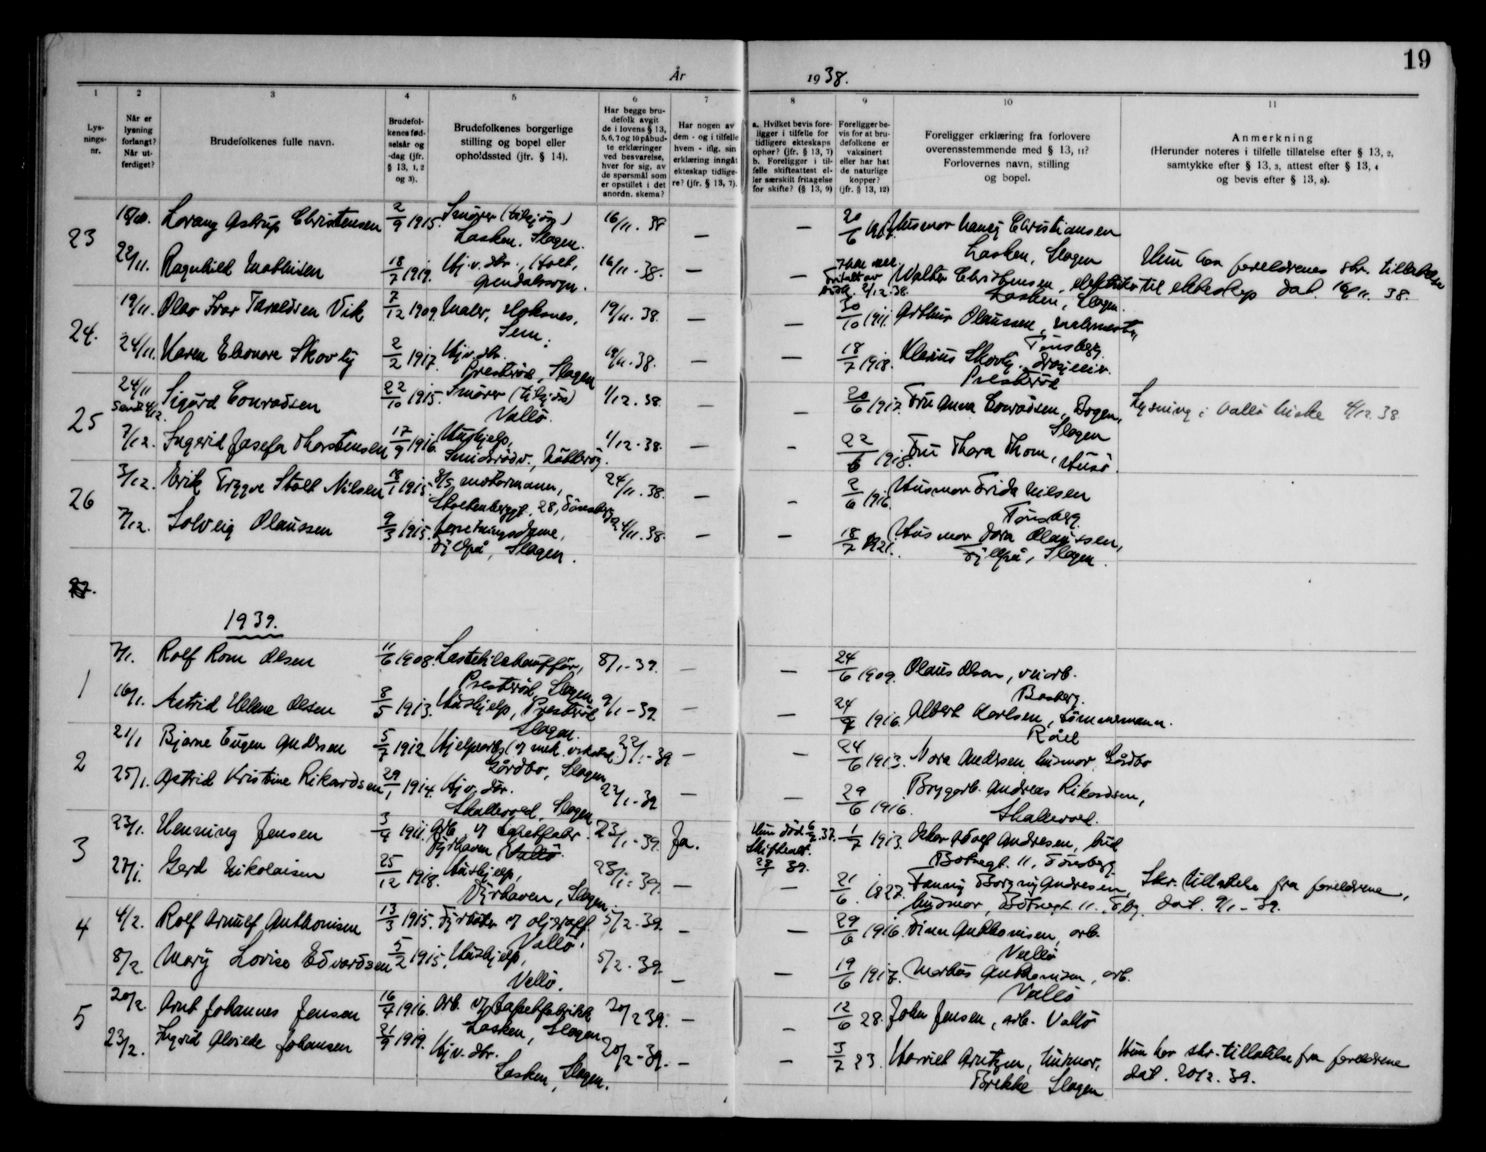 19
År 1938.
1 2 3 4 5 6 7 8 9 10 11
Lysnings-nr.
Når er lysning forlangt? Når utferdiget?
Brudefolkenes fulle navn.
Brudefolkenes fødselsår og -dag (jfr. § 13, 1, 2 og 3).
Brudefolkenes borgerlige stilling og bopel eller opholdssted (jfr. § 14).
Har begge brudefolk avgit de i lovens § 13, 5, 6, 7 og 10 påbudte erklæringer ved besvarelse, hver for sig, av de spørsmål som er opstillet i det anordn. skema?
Har nogen av dem - og i tilfelle hvem - iflg. sin erklæring inngått ekteskap tidligere? (jfr. § 13, 7).
a. Hvilket bevis foreligger i tilfelle for tidligere ekteskaps ophør? (jfr. § 13, 7) b. Foreligger i tilfelle skifteattest eller særskilt fritagelse for skifte? (§ 13, 9)
Foreligger bevis for at brudefolkene er vaksinert eller har hat de naturlige kopper? (jfr. § 13, 12)
Foreligger erklæring fra forlovere overensstemmende med § 13, 11? Forlovernes navn, stilling og bopel.
Anmerkning (Herunder noteres i tilfelle tillatelse efter § 13, 2, samtykke efter § 13, 3, attest efter § 13, 4 og bevis efter § 13, 8).
23 Lorang Astrup Christensen 2/9 1915. Smører (tilhjørg) 16/11. 38 — — 20/6 Husmor Nancy Christiansen
Lasken. Slagen. Lasken, Slagen
22/11. Ragnhild Mathisen 18/7 1919. Hj. v. dtr., 16/11. 38. — — Walter Christensen, Hun har foreldrenes skr. tillatelse
Lasken, Slagen. til ekteskap dat. 16/11. 38.
24. 19/11. Olav Ivar Taraldsen Vik 7/12 1909. Maler, Hoksnes, 19/11. 38 — — 30/10 1911. Arthur Olaussen,
Sem. Tønsberg.
24/11. Karen Eleonore Skovly 2/2 1917. Hj. v. dtr. 19/11. 38. — — 18/7 1918. Skovly,
Presterød, Slagen Presterød
25 24/11 Sigurd Conradsen 22/10 1915. Smører 1/12. 38 — — 20/6 1917. Fru Anna Conradsen, Slagen Lysning i Vallø kirke 4/12 38
Vallø.
7/12. Ingrid Josefa Thorstensen 17/9 1916. Hushjelp, 1/12. 38. — — 22/6 1918. Fru Thora Thom, Husø
26 3/12. Erik Trygve Stoll Nilsen 1915. motormann, 24/11. 38. — — 2/6 1916. Husmor Frida Nilsen
28, Tønsberg Tønsberg
7/12. Solveig Olaussen 9/3 1915. forretningsdame, 24/11. 38. — — 18/7 1921. Husmor Dora Olaussen,
Slagen. Slagen.
27.
1939.
1 7/1. Rolf Rom Olsen 11/6 1908. Lastebilchauffør, 8/1 - 39. — — 24/6 1909. Olaus Olsen,
Presterød, Slagen. Basberg.
16/1. Astrid Helene Olsen 8/5 1913. Hushjelp, Presterød 9/1 - 39 — — 24/9 1916. Albert Karlsen, tømmermann.
Slagen. Råel
2 21/1 Bjarne Eugen Andersen 5/7 1912 Hjelpearb. (v/ mek. verksted) 22/1 - 39 — — 24/6 1913. Nora Andersen husmor Gårdbo
Gårdbo, Slagen
25/1. Astrid Kristine Rikardsen 29/1 1914. Hj. v. dtr. 22/1 - 39 — — 29/6 1916. Bryggearb. Andreas Rikardsen,
Skallevold, Slagen Skallevold.
3 23/1. Henning Jensen 3/4 1911. Arb. v/ tapetfabr. 23/1 - 39. Ja. Hun død 6/ 37. 1/7 1913. Adolf Andresen,
Fyrhaven Vallø. Skifteatt. 39. 11, Tønsberg
27/1. Gerd Nikolaisen 25/12 1918. Hushjelp, 23/1 - 39. — — 21/6 1827. Fanny Borgny Andresen, Skr. tillatelse fra foreldrene,
Fyrhaven, Slagen. husmor, 11. Tbg. dat. 9/1 - 39.
4 4/2. Rolf Arnulf Anthonisen 13/3 1915. Fyrbøter v/ oljeraff. 5/2 - 39. — — 29/6 1916. Anthonisen, arb.
Vallø. Vallø
8/2 Mary Lovise Edvardsen 5/2 1915. Hushjelp, 5/2 - 39 — — 19/6 1917. Markus Anthonisen, arb.
Vallø. Vallø
5 20/2. Arnt Johannes Jensen 16/7 1916. Arb. v/ tapetfabrikk 20/2 39. — — 12/6 28. John Jensen, arb. Vallø
Lasken, Slagen
23/2. Ingrid Alvilde Johansen 21/9 1919. Hj. v. dtr. 20/2 - 39. — — 3/7 23. Harriet Arntzen, husmor, Hun har skr. tillatelse fra foreldrene
Lasken, Slagen. Brekke Slagen dat. 20/2. 39.